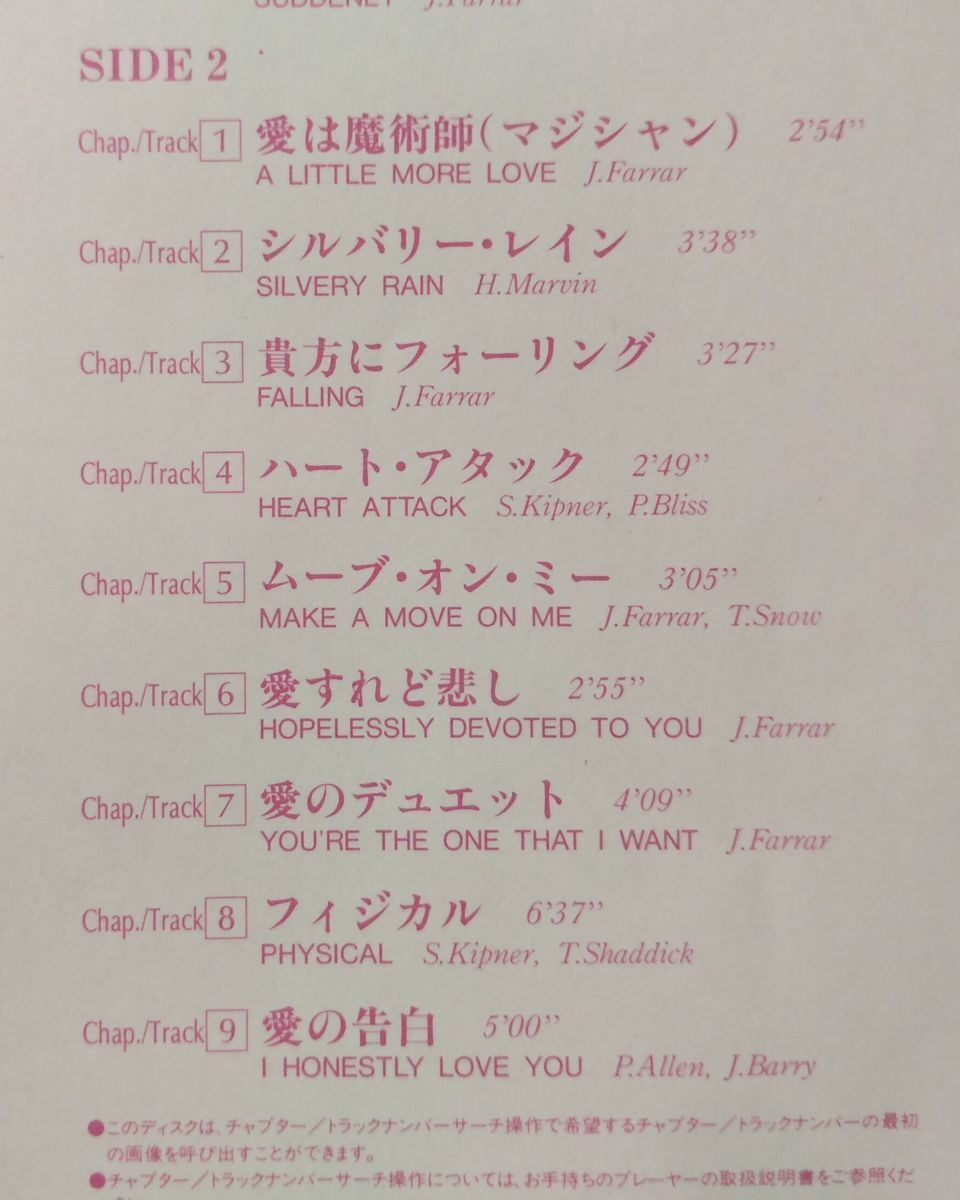 SUDDENLY J.Farrar
SIDE 2
Chap./Track 1 愛は魔術師(マジシャン) 2'54''
A LITTLE MORE LOVE J.Farrar
Chap./Track 2 シルバリー・レイン 3'38''
SILVERY RAIN H.Marvin
Chap./Track 3 貴方にフォーリング 3'27''
FALLING J.Farrar
Chap./Track 4 ハート・アタック 2'49''
HEART ATTACK S.Kipner, P.Bliss
Chap./Track 5 ムーブ・オン・ミー 3'05''
MAKE A MOVE ON ME J.Farrar, T.Snow
Chap./Track 6 愛すれど悲し 2'55''
HOPELESSLY DEVOTED TO YOU J.Farrar
Chap./Track 7 愛のデュエット 4'09''
YOU'RE THE ONE THAT I WANT J.Farrar
Chap./Track 8 フィジカル 6'37''
PHYSICAL S.Kipner, T.Shaddick
Chap./Track 9 愛の告白 5'00''
I HONESTLY LOVE YOU P.Allen, J.Barry
●このディスクは、チャプター／トラックナンバーサーチ操作で希望するチャプター／トラックナンバーの最初
の画像を呼び出すことができます。
●チャプター／トラックナンバーサーチ操作については、お手持ちのプレーヤーの取扱説明書をご参照くだ